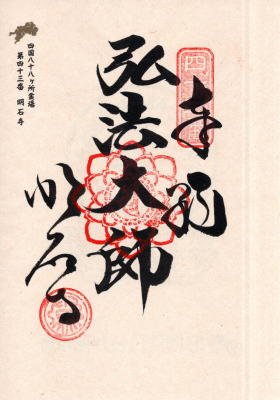 四国八十八ヶ所霊場
第四十三番 明石寺
奉納
弘法大師
明石寺